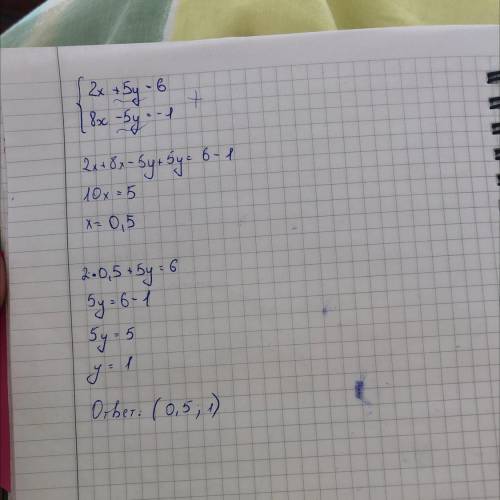 { 2x + 5y = 6
8x - 5y = -1 +
2x + 8x - 5y + 5y = 6 - 1
10x = 5
x = 0,5
2 • 0,5 + 5y = 6
5y = 6 - 1
5y = 5
y = 1
Ответ: (0,5, 1)